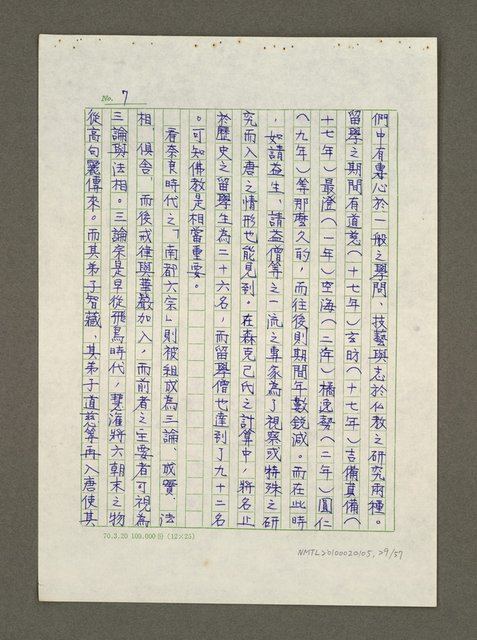 No. 7
們中有專心於一般之學問、技藝與志於仏教之研究兩種。
留學之期間有道慈(十七年)玄昉(十七年)吉備真備(
十七年)最澄(一年)空海(二年)橘逸勢(二年)圓仁
(九年)等那麼久的,而往後則期間年數銳減。而在此時
,如請益生、請益僧等之一流之專家為了視察或特殊之研
究而入唐之情形也能見到。在森克己氏之計算中,將名止
於歷史之留學生為二十六名,而留學僧也達到了九十二名
。可知佛教是相當重要。
看奈良時代之「南都六宗」則被組成為三論、成實、法
相、俱舍、而後戒律與華嚴加入,而前者之主要者可視為
三論與法相。三論宗是早從飛鳥時代,慧灌將六朝末之物
從高句麗傳來。而其弟子智藏,其弟子道慈等再入唐使其
70.3.20 100.000份 (12×25)
NMTL20100020105, 29/57